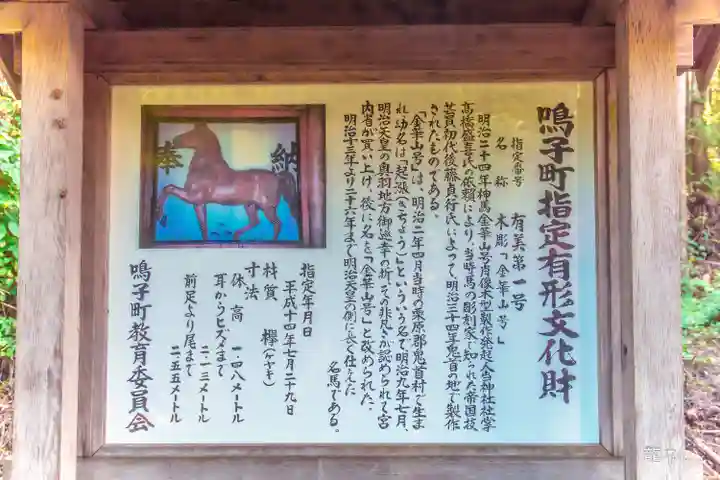 鳴子町指定有形文化財
指定番号 有美第一号
名称 木彫「金華山号」
明治二十四年神馬金華山号肖像木型製作発起人当神社社掌
高橋盛喜氏の依頼により、当時馬の彫刻家で知られた帝国技
芸員初代後藤貞行氏によって、明治三十四年鬼首の地で製作
されたものである。
「金華山号」は、明治二年四月当時の栗原郡鬼首村で生ま
れ幼名は「起漲(きちょう)」といういう名で明治九年七月、
明治天皇の奥羽地方御巡幸の折、その非凡さが認められて宮
内省が買い上げ、後に名を「金華山号」と改められた。
明治十三年より二十六年まで明治天皇の側に長く仕えた
名馬である。
奉
納
指定年月日
平成十四年七月二十九日
材質 欅(ケヤキ)
寸法
体高 一・四八メートル
耳からヒズメまで
二・一三メートル
前足より尾まで
二・五五メートル
鳴子町教育委員会